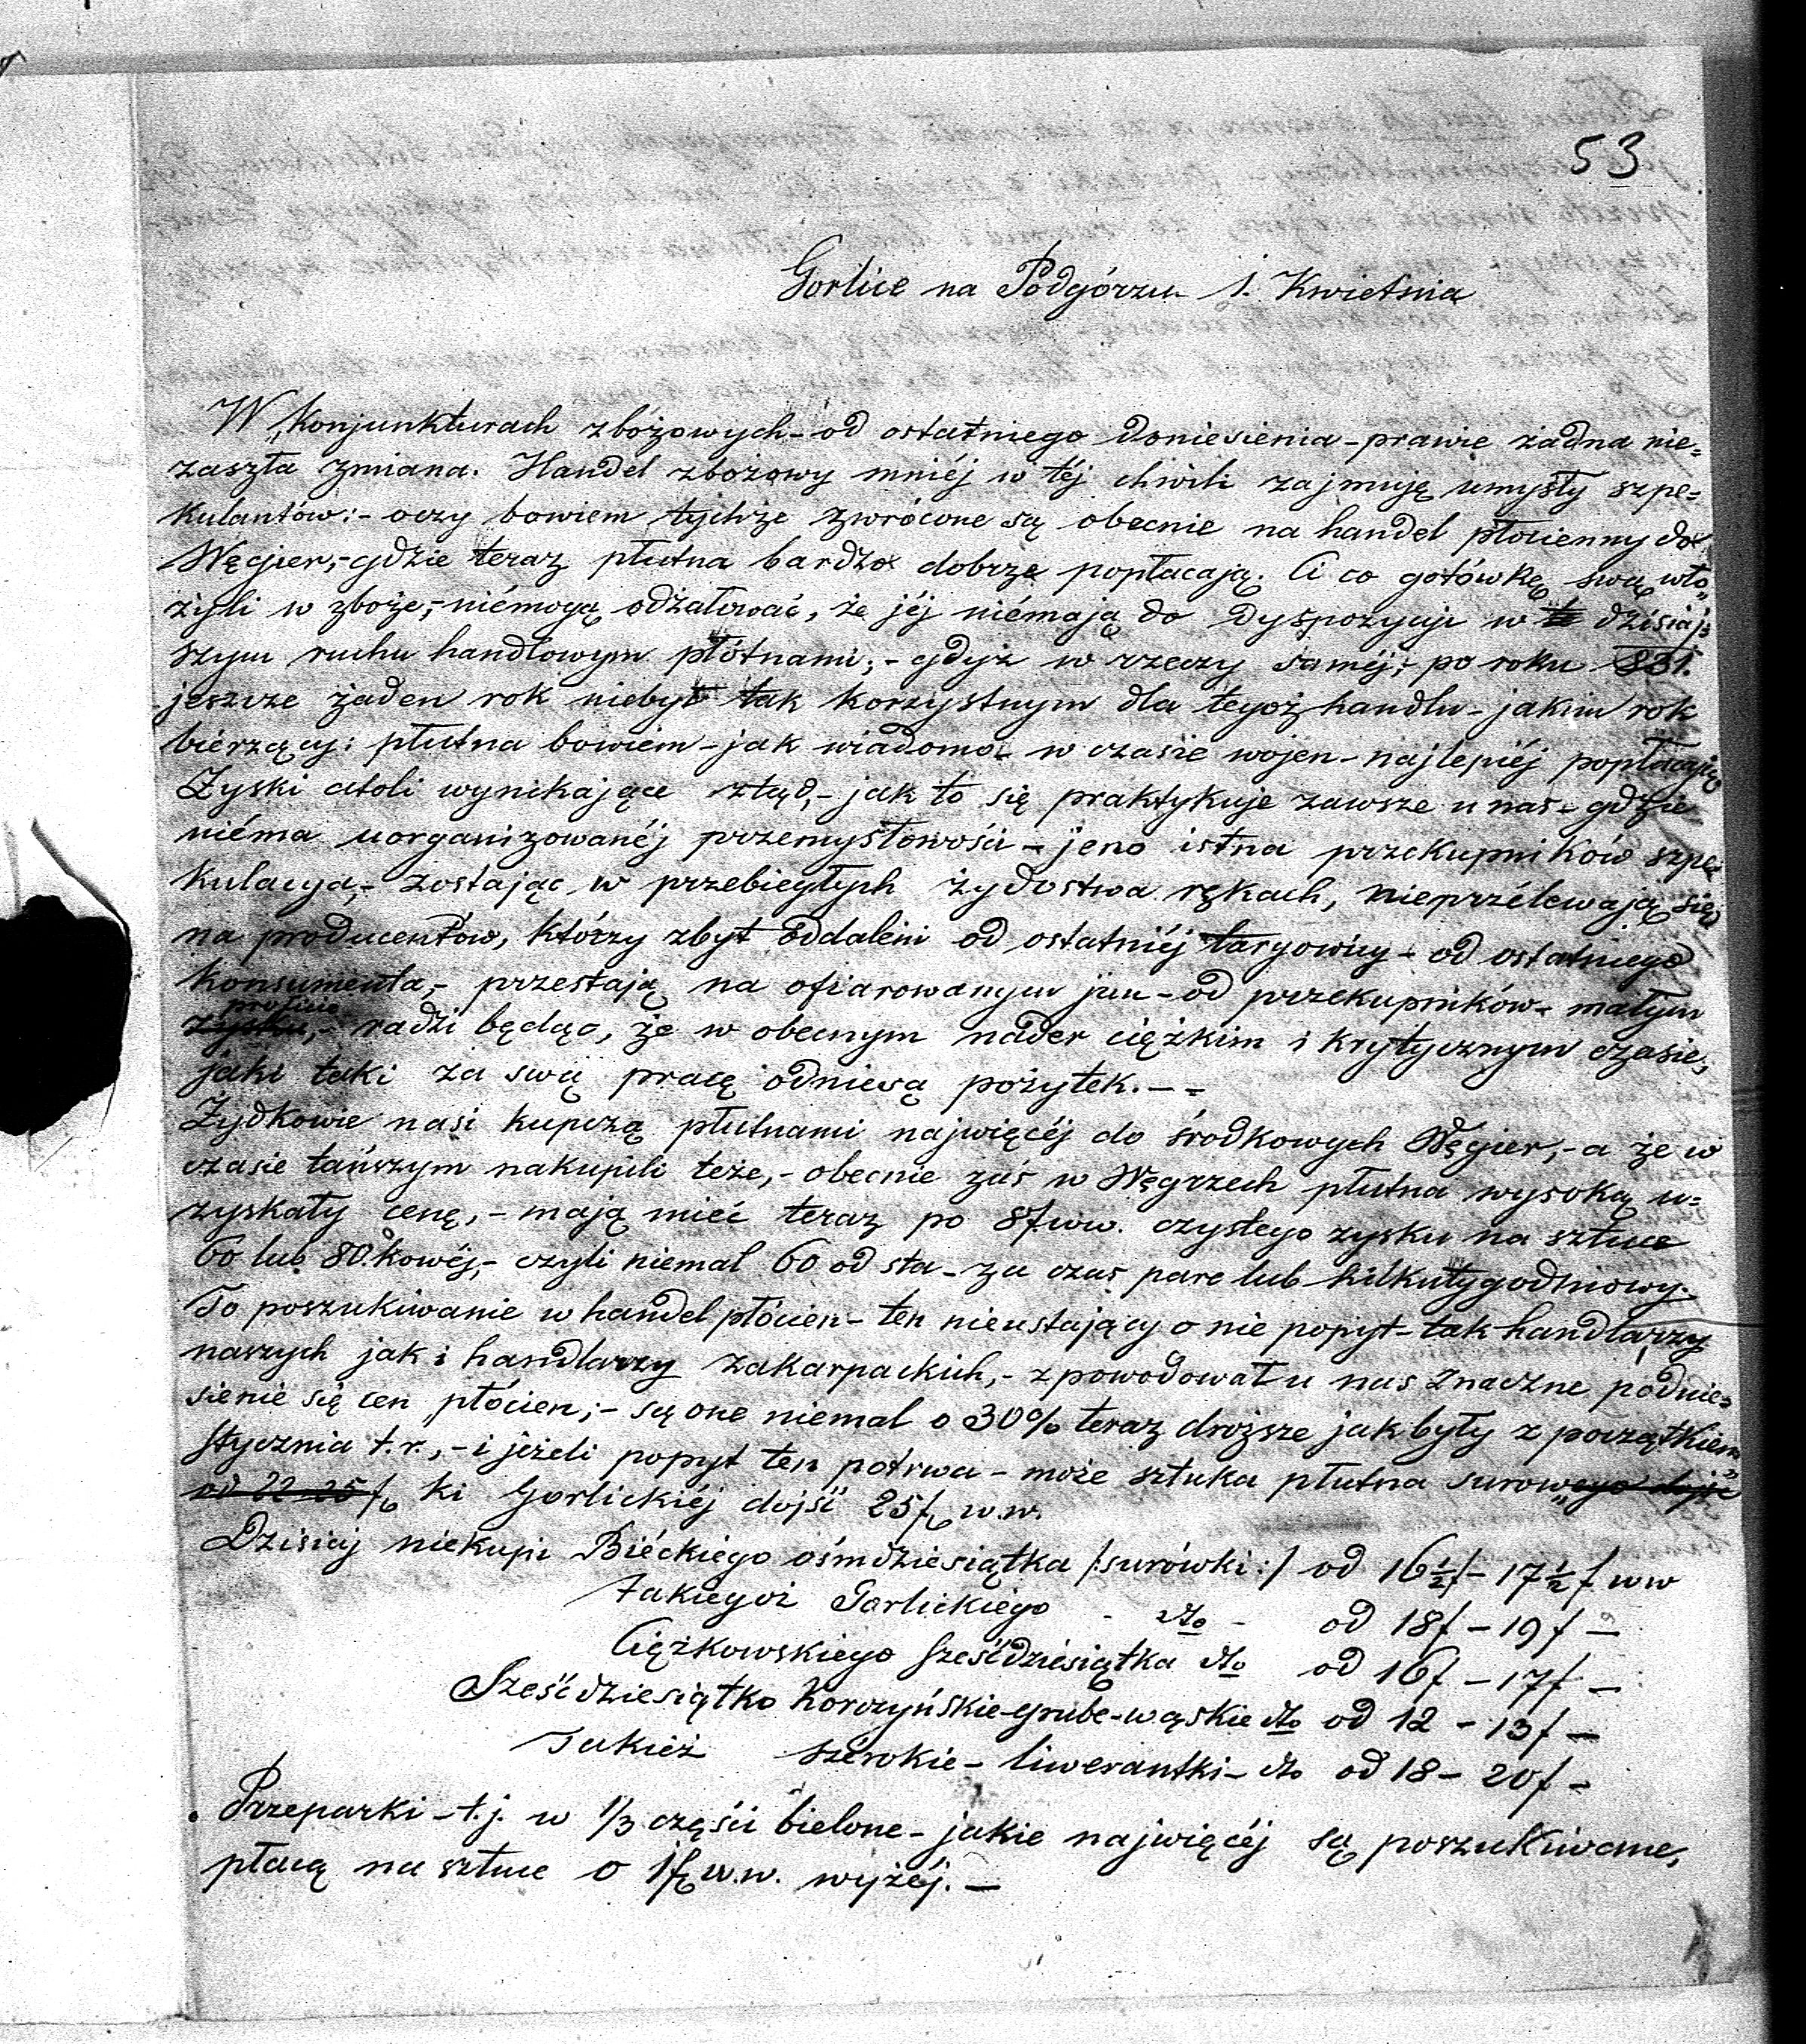 53
Gorlice na Podgórzu 1. Kwietnia
W „Konjunkturach zbóżowych - od ostatniego doniesienia - prawie żadna nie=
zaszła zmiana. Handel zbożowy mniéj w téj chwili zajmuję umysły szpe=
kulantów: - oczy bowiem tychże zwrócone są obecnie na handel płócienny do
Węgier, - gdzie teraz płutna bardzo dobrze popłacają. Ci co gotówkę swą wło„
żyli w zboże, - niémogą odżałować, że jéj niémają do dyspozycji w dzisiaj=
szym ruchu handlowym płótnami; - gdyż w rzeczy saméj, - po roku 831.
jeszcze żaden rok niebył tak korzystnym dla tegoż handlu - jakim rok
bieżący: płutna bowiem - jak wiadomo - w czasie wojen - najlepiéj popłacają
Zyski atoli wynikające ztąd, - jak to się praktykuje zawsze u nas - gdzie
niéma uorganizowanéj przemysłowości - jeno istna przekupników szpe=
kulacya, - zostając w przebiegłych żydostwa rękach, nieprzélewają się
na producentów, którzy zbyt oddaleni od ostatniéj targowicy - od ostatniego
konsumenta, - przestają na ofiarowanym jim - od przekupników - małym
zysku, - radzi będąc, że w obecnym nader ciężkim i krytycznym czasie,
jaki taki za swą pracę odniesą pożytek. - -
Żydkowie nasi kupczą płutnami najwięcéj do środkowych Węgier, - a że w
czasie tańszym nakupili teże, - obecnie zaś w Węgrzech płutna wysoką u=
zyskały cenę, - mają mieć teraz po 8f ww. czystego zysku na sztuce
60 lub 80.kowéj, - czyli niemal 60 od sta - za czas pare lub kilkutygodniowy.
To poszukiwanie w handel płócien - ten nieustający o nie popyt - tak handlarzy
naszych jak i handlarzy zakarpackich, - zpowodował u nas znaczne podnie=
sienie się cen płócien; - są one niemal o 30% teraz droższe jak były z początkiem
Stycznia t.r., - i jeżeli popyt ten potrwa - może sztuka płutna surowego dojść
od 22-25 f ki Gorlickiéj dojść 25 f w.w.
Dzisiaj niekupi Biéckiego ośmdziesiątka /:surówki:/ od 16½f - 17½f ww
takiegoż Gorlickiego - dto - od 18f - 19f -
Ciężkowskiego sześćdziésiątka dto od 16f - 17f -
Sześćdziesiątko Korczyńskie - grube - wąskie dto od 12 - 13f -
Takież szérokie - liwerantki - dto od 18 - 20f -
Przeparki - t.j. w 1/3 części bielone - jakie najwięcéj są poszukiwane,
płacą na sztuce o 1f w.w. wyżéj. -